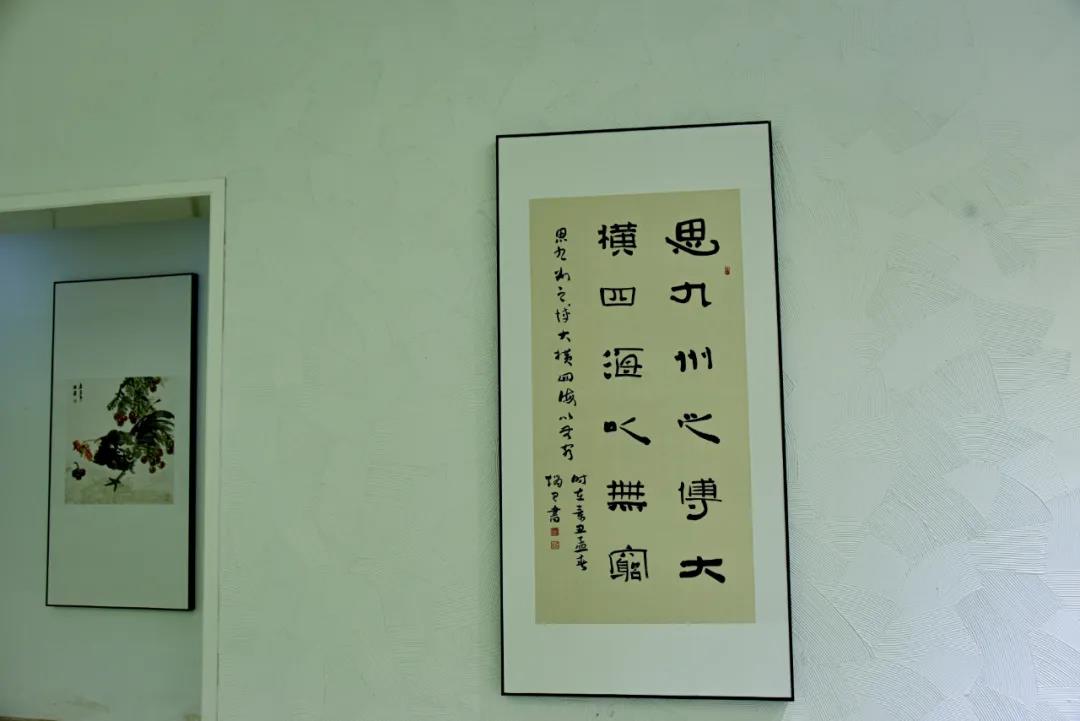 思九州之博大
橫四海以無窮
思九州之博大横四海以无穷
时在辛丑孟春
書